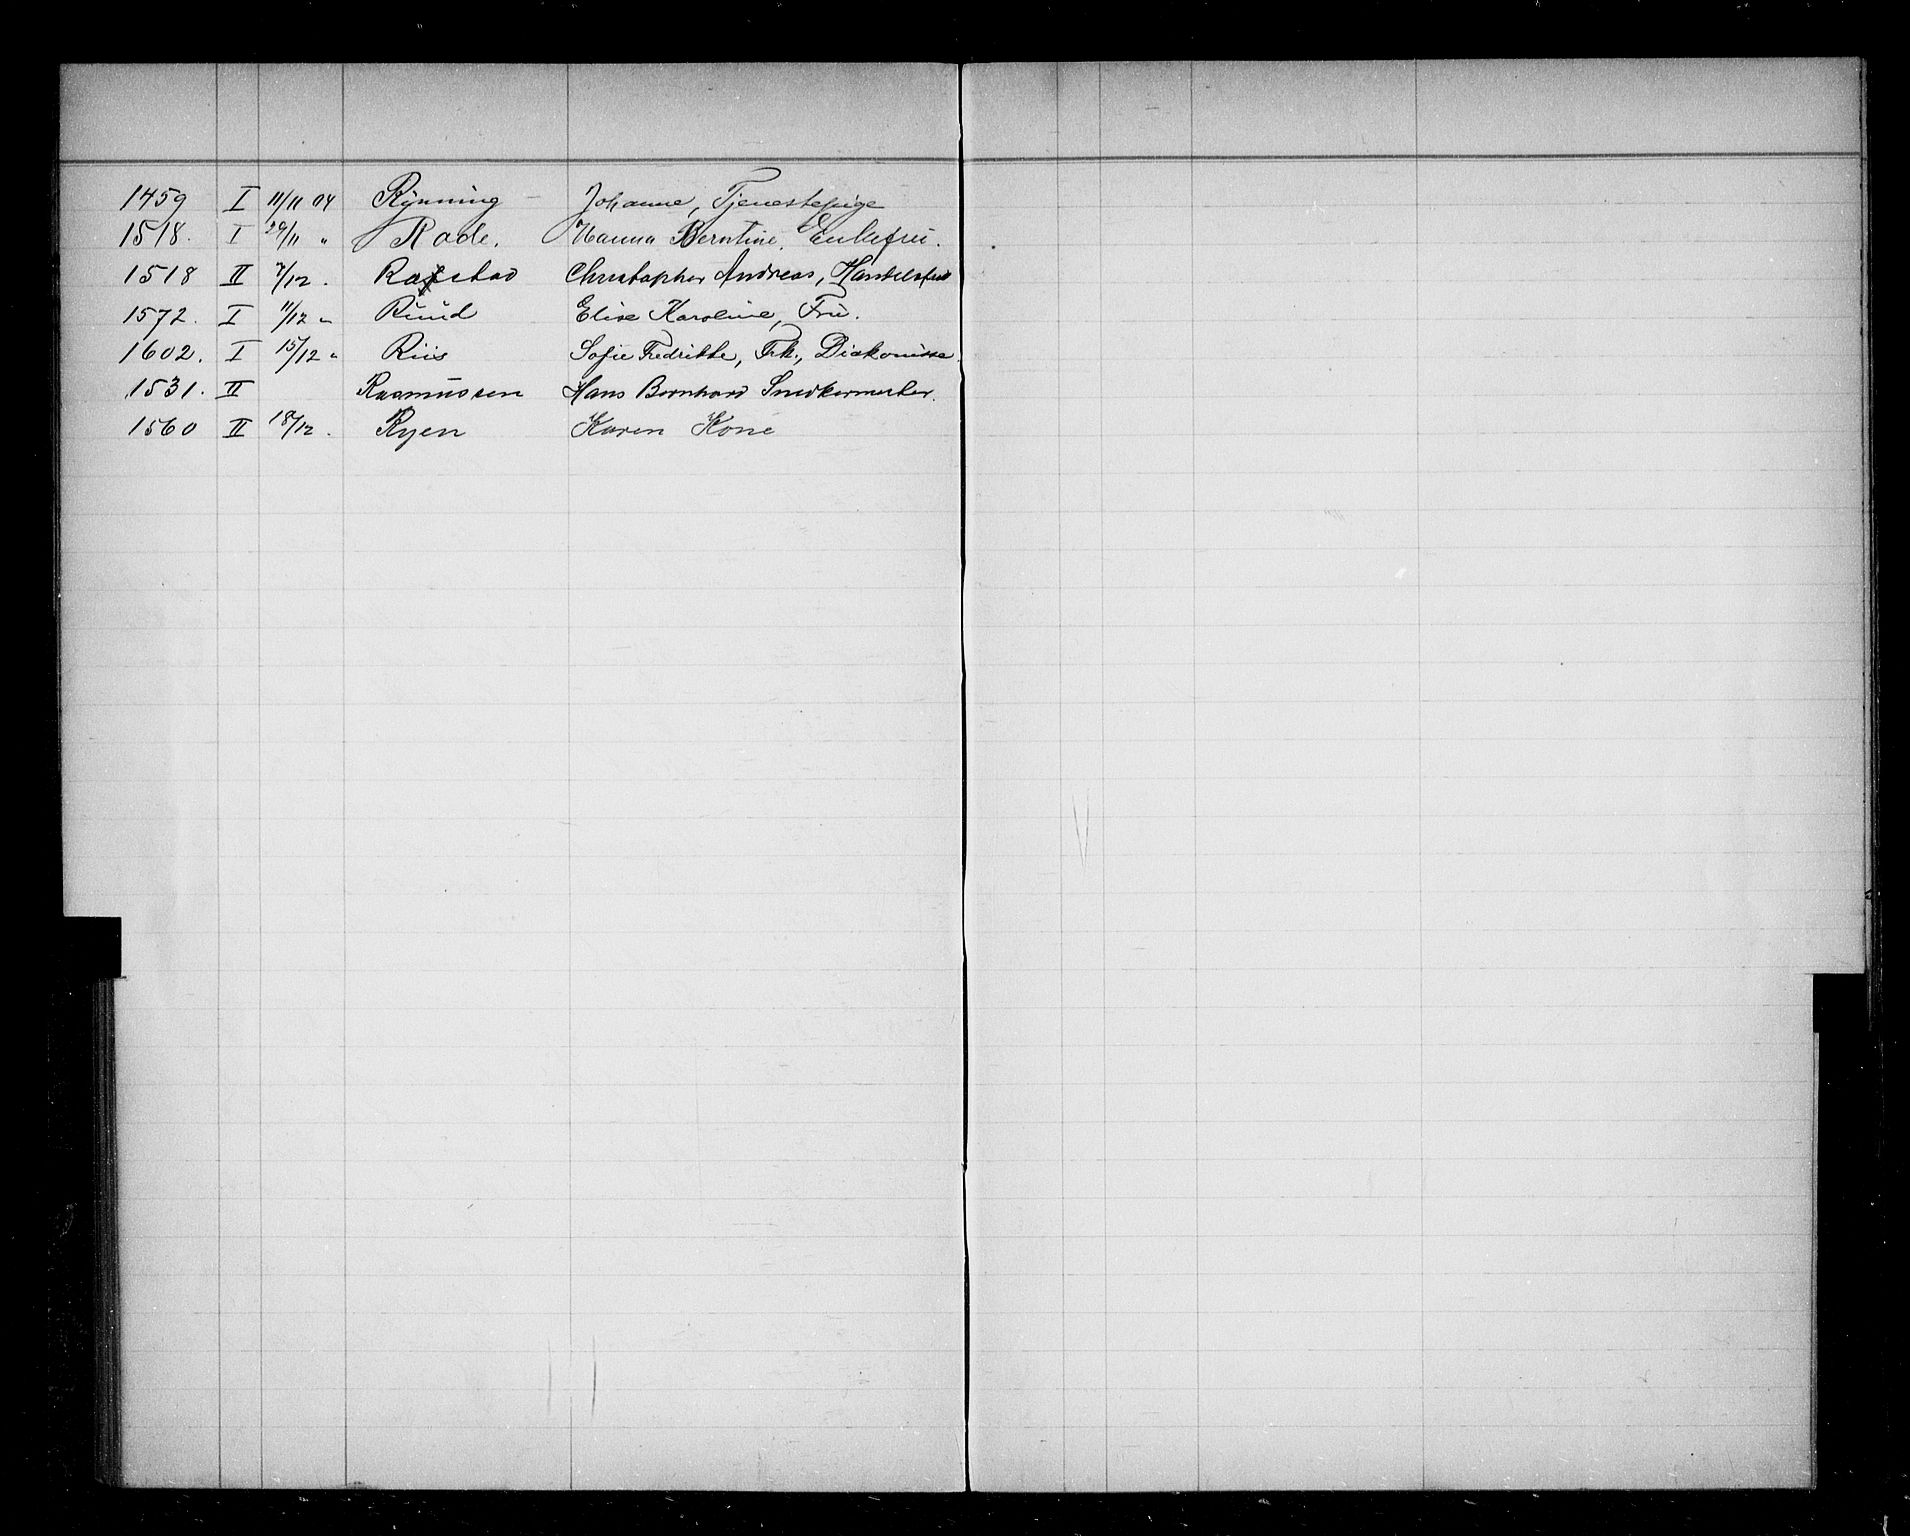 1459 I 11/11 04 Rynning – Johanne, Tjenestepige
1518. I 29/11 " Rode. Hanna Berntine, Enkefru.
1518 II 7/12. Christopher Andreas,
1572. I 11/12 " Ruud Elise Karoline, Fru.
1602. I 15/12 " Riis Sofie Fredrikke, Frk., Diakonisse.
1531. II Rasmussen Hans Bernhard Snedkermester.
1560 II 18/12. Ryen Karen Kone